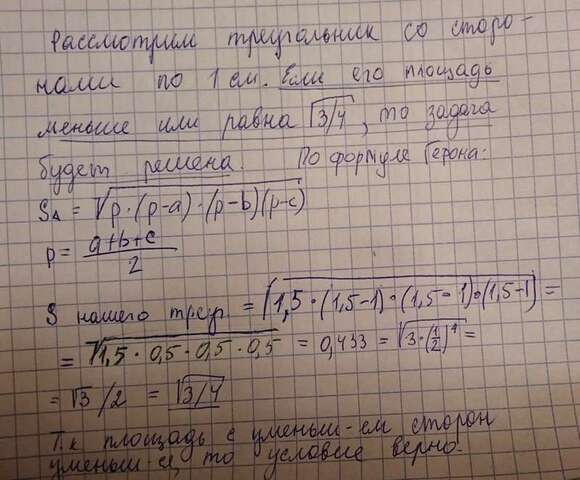 Рассмотрим треугольник со сторо-
нами по 1 см. Если его площадь
меньше или равна √3/4, то задача
будет решена. По формуле Герона:
S△ = √p·(p-a)·(p-b)(p-c)
p = a+b+c / 2
S нашего треуг. = √1,5·(1,5-1)·(1,5-1)·(1,5-1) =
= √1,5·0,5·0,5·0,5 = 0,433 = √3·(1/2)^4 =
= √3/2 = √3/4
Т.к площадь с уменьш-ем сторон
уменьш-ся, то условие верно.